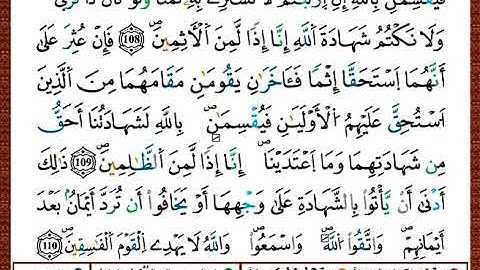 فَيُقْسِمَٰنِ بِاللَّهِ إِنِ ارْتَبْتُمْ لَا نَشْتَرِے بِهِۦ ثَمَنًا وَلَوْ كَانَ ذَا قُرْبَىٰ
وَلَا نَكْتُمُ شَهَٰدَةَ اللَّهِ إِنَّا إِذًا لَّمِنَ الْأَثِمِينَ 108 فَإِنْ عُثِرَ عَلَىٰ
أَنَّهُمَا اَسْتَحَقَّا إِثْمًا فَـَٔاخَرَٰنِ يَقُومَٰنِ مَقَامَهُمَا مِنَ الَّذِينَ
اَسْتُحِقَّ عَلَيْهِمُ الْأَوْلَيَٰنِ فَيُقْسِمَٰنِ بِاللَّهِ لَشَهَٰدَتُنَا أَحَقُّ
مِن شَهَٰدَتِهِمَا وَمَا اَعْتَدَيْنَا إِنَّا إِذًا لَّمِنَ الظَّٰلِمِينَ 109 ذَٰلِكَ
أَدْنَىٰ أَنْ يَّأْتُوا۟ بِالشَّهَٰدَةِ عَلَىٰ وَجْهِهَا أَوْ يَخَافُوا۟ أَن تُرَدَّ أَيْمَٰنٌۢ بَعْدَ
أَيْمَٰنِهِمْ وَاتَّقُوا۟ اللَّهَ وَاسْمَعُوا۟ وَاللَّهُ لَا يَهْدِے الْقَوْمَ الْفَٰسِقِينَ 110